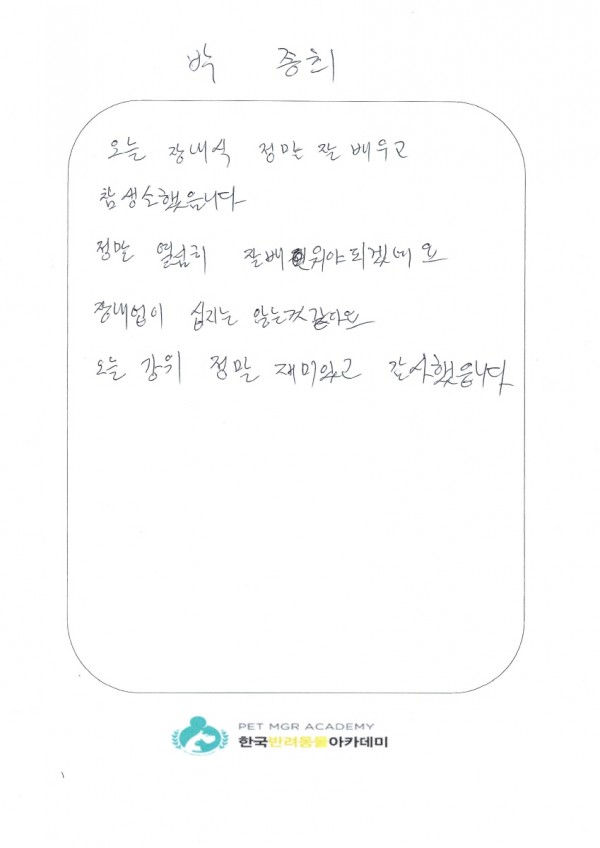 박 종희
오늘 장내식 정말 잘 배우고
참 생소했읍니다
정말 열심히 잘배워야되겠네요
장내업이 쉽지는 않는것 같다요
오늘 강의 정말 재미있고 감사했읍니다
PET MGR ACADEMY
한국반려동물아카데미